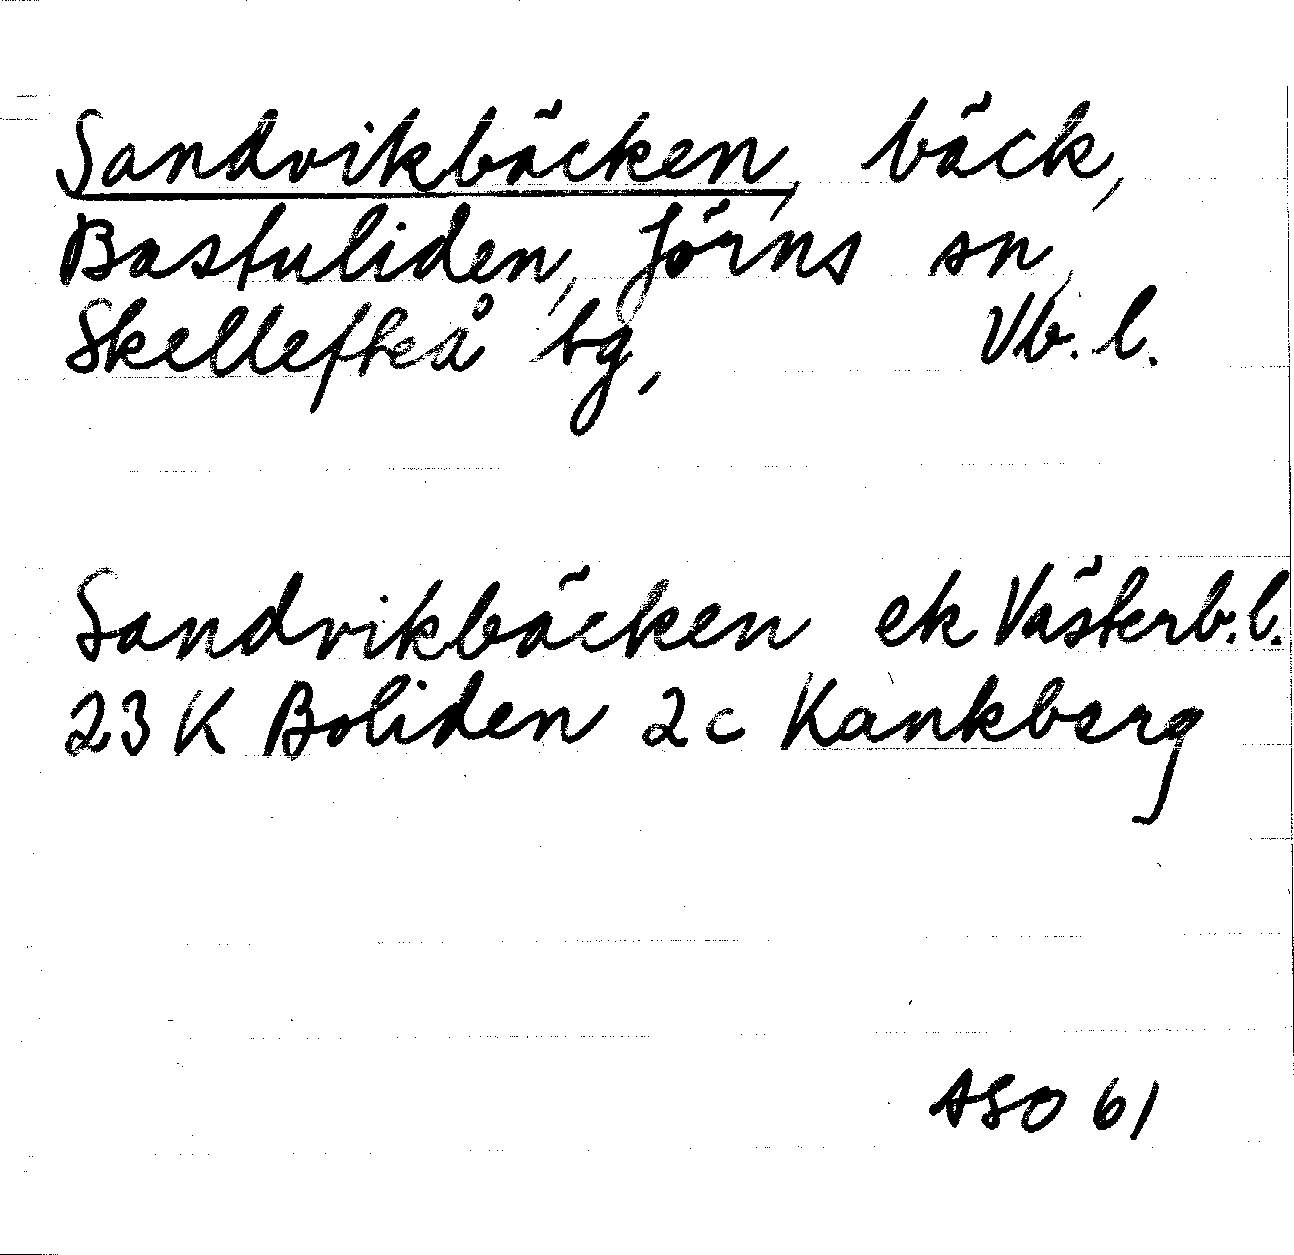 Sandvikbäcken, bäck,
Bastuliden, Jörns sn,
Skellefteå tg, Vb. l.
Sandvikbäcken ek Västerb. l.
23 K Boliden 2 c Kankberg
ASO 61